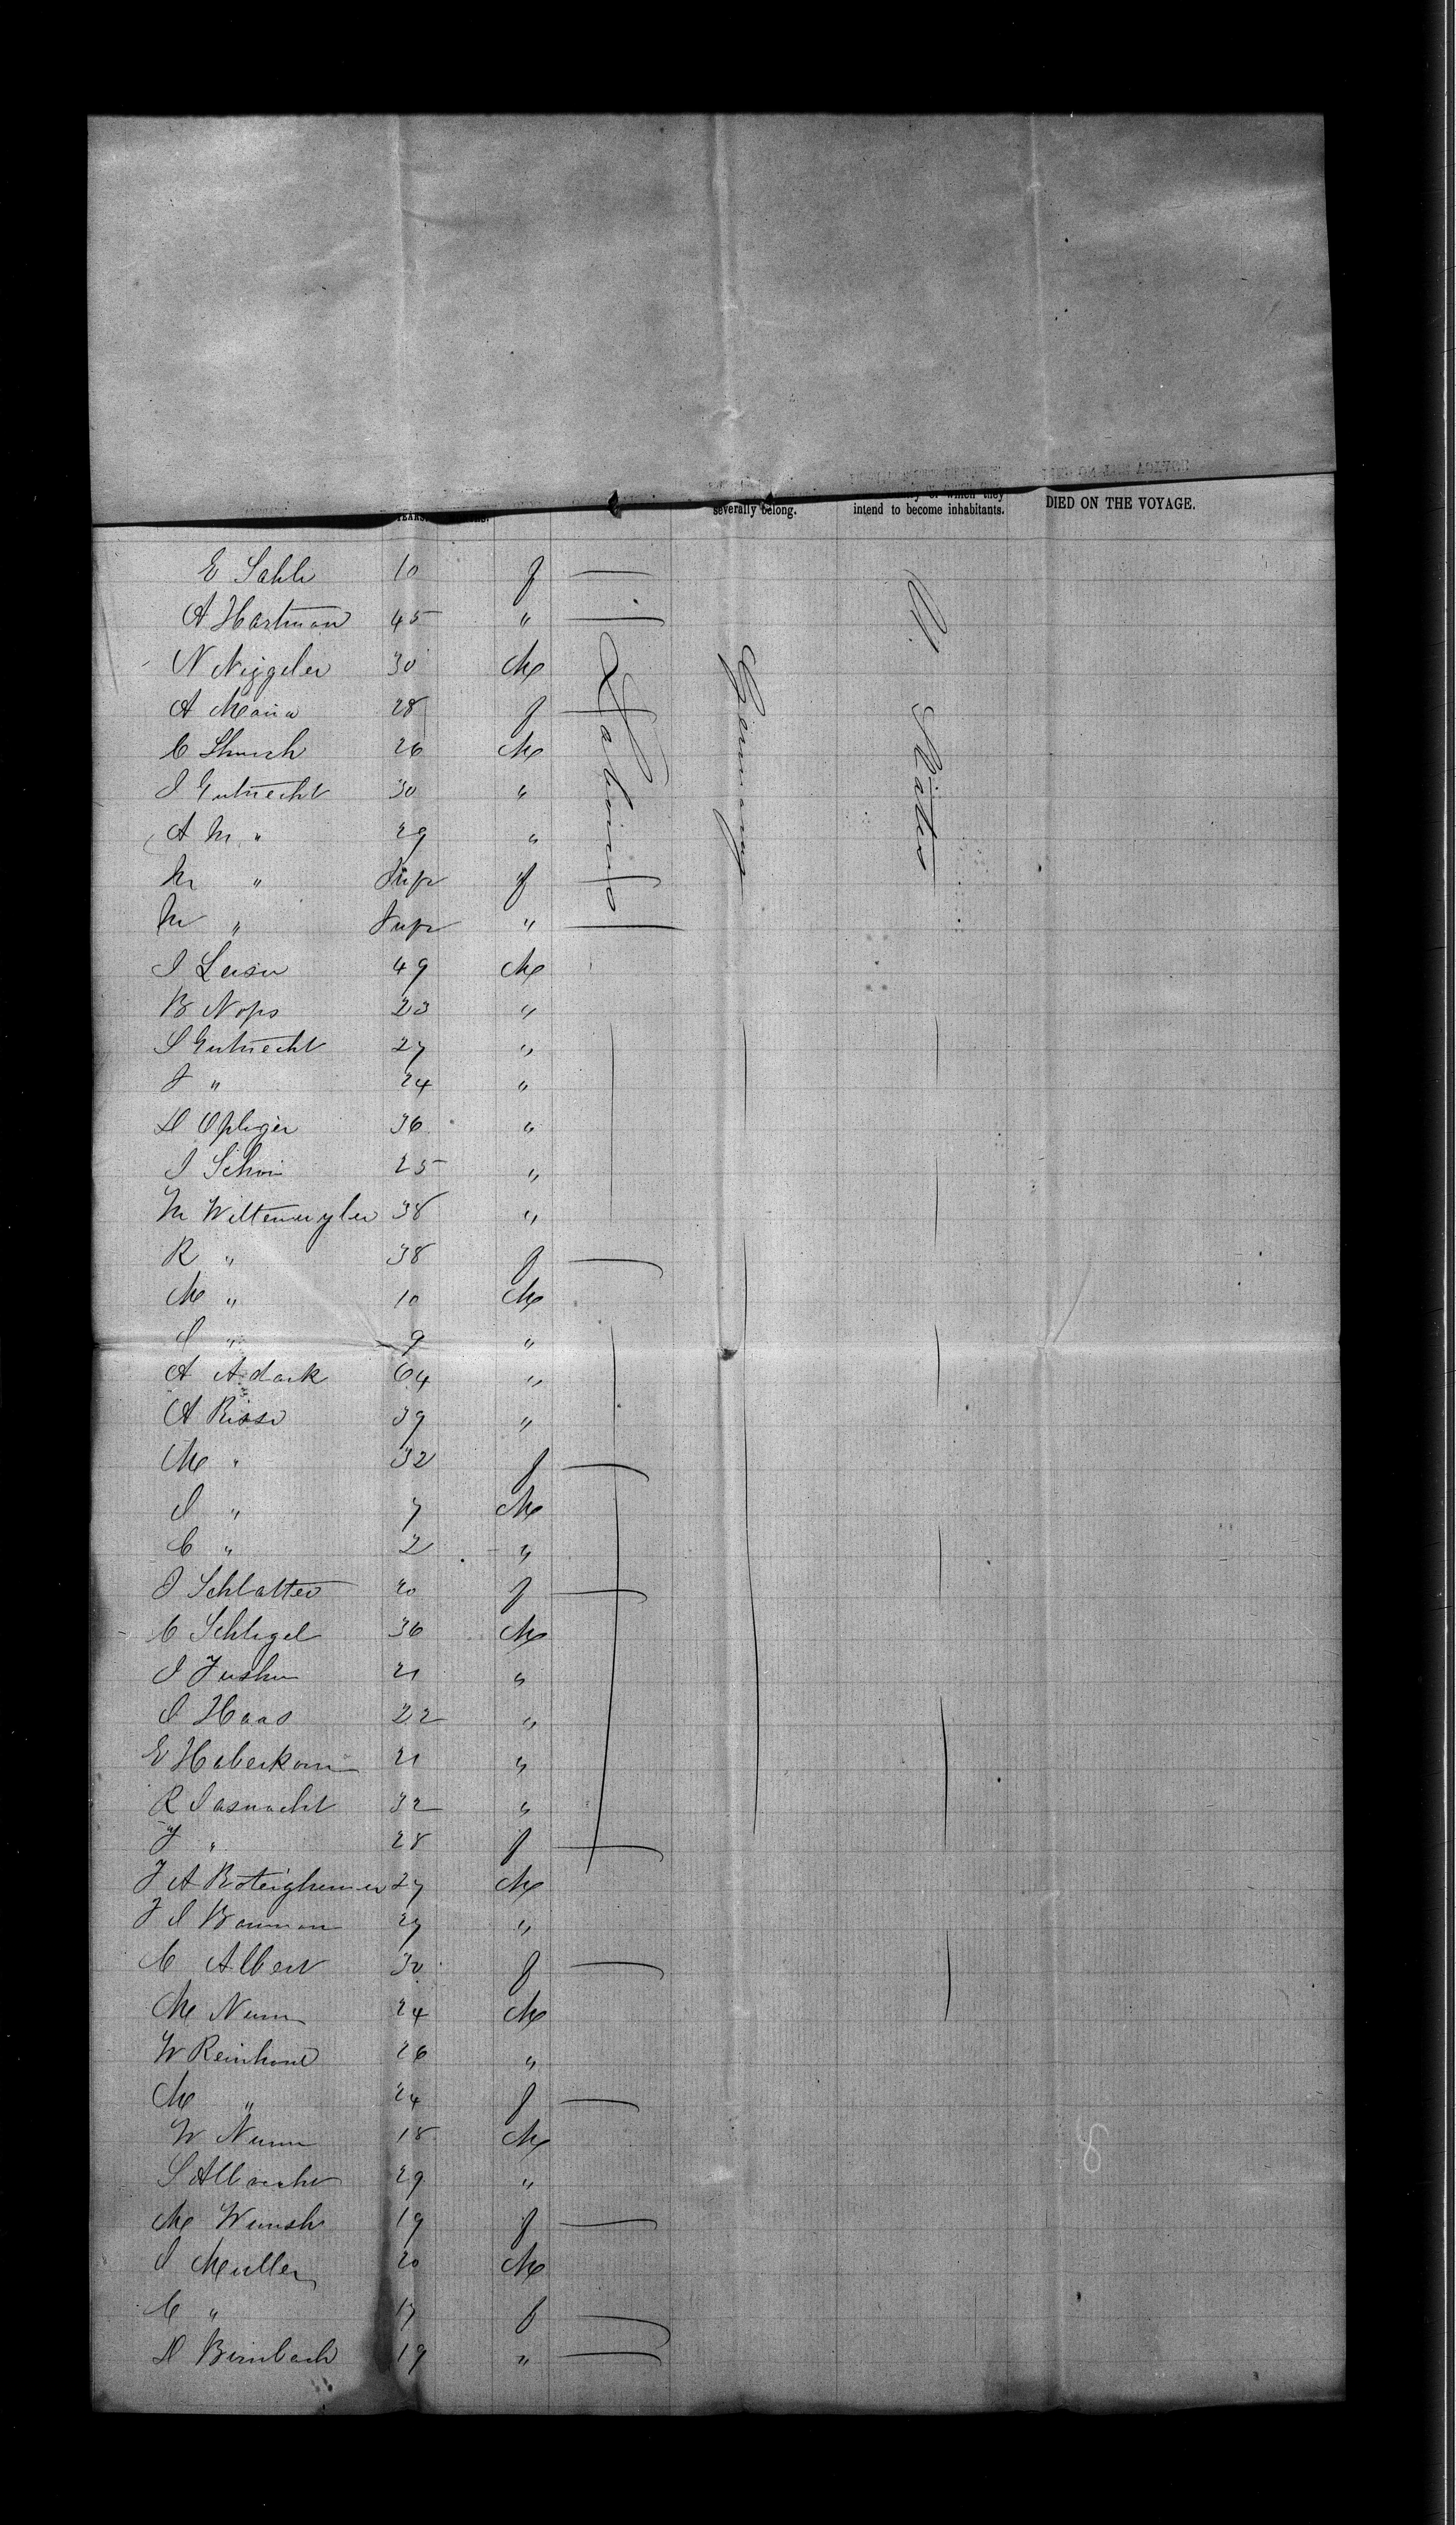 YEARS. severally belong. which they intend to become inhabitants. DIED ON THE VOYAGE.
E Sahli 10 f
A Hartman 45 "
N Niggeler 30 M
A Maria 28 f
C 26 M
J Gutnecht 30 "
A M " 29 "
M " f
M " "
J 49 M
B Nops 23 "
S Gutnecht 27 "
J " 24 "
D Opliger 36 "
J Schori 25 "
M Wittenwyler 38 "
R " 38 f
M " 10 M
J " 9 "
A Adank 64 "
A Risse 39 "
M " 32 f
J " 7 M
C " 2 "
J Schlatter 20 f
C Schlegel 36 M
J 21 "
J Haas 22 "
E Haberkorn 21 "
R 32 "
" 28 f
J A 27 M
J J Bauman 27 "
C Albert 30 f
M Nunn 24 M
W Reinhard 26 "
M " 24 f
W Nunn 18 M
S 29 "
M Wunsh 19 f
J Muller 20 M
C " 17 f
D Birnbach 19 "
Laborers
Germany
U. States
8